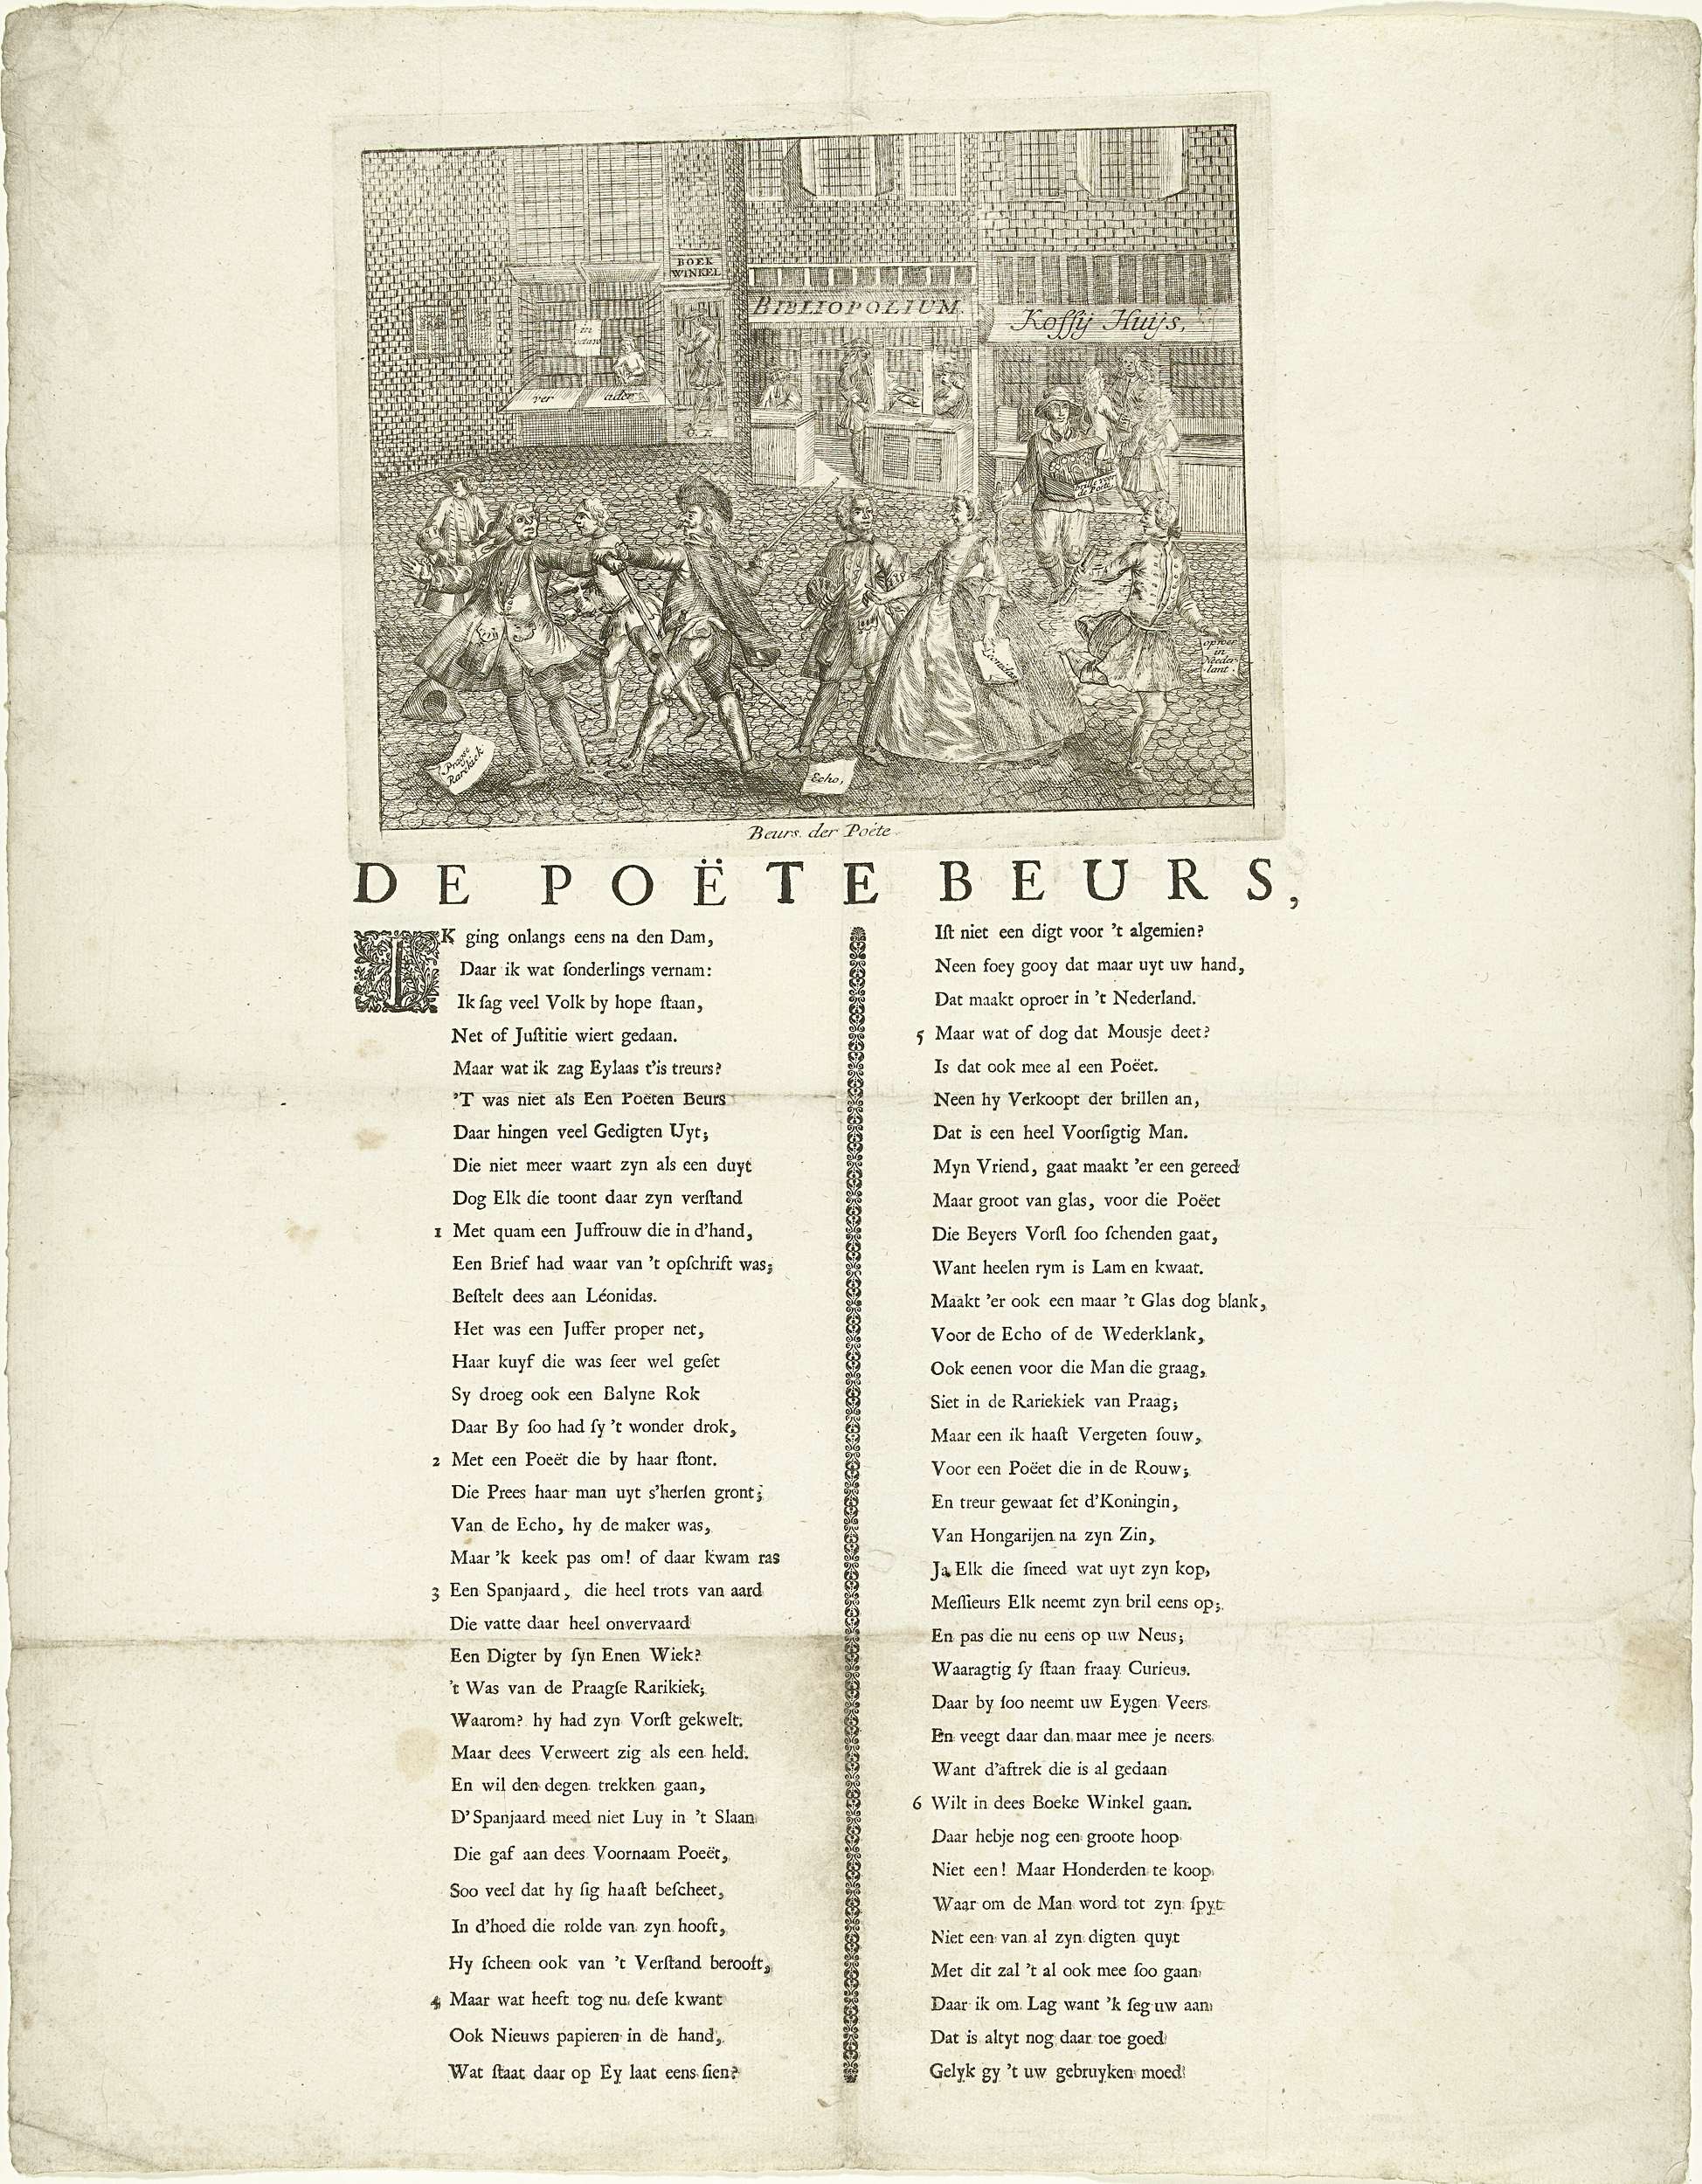 BOEK
WINKEL
BIBLIOPOLIUM
Koffij Huijs,
in
ver
Leonidas
oproer
in
Neder
lant.
Praagse
Rarekiek
Echo,
Beurs der Poëte
DE POËTE BEURS,
IK ging onlangs eens na den Dam,
Daar ik wat ſonderlings vernam:
Ik ſag veel Volk by hope ſtaan,
Net of Juſtitie wiert gedaan.
Maar wat ik zag Eylaas t'is treurs?
'T was niet als Een Poëten Beurs
Daar hingen veel Gedigten Uyt;
Die niet meer waart zyn als een duyt
Dog Elk die toont daar zyn verſtand
1 Met quam een Juffrouw die in d'hand,
Een Brief had waar van 't opſchrift was;
Beſtelt dees aan Léonidas.
Het was een Juffer proper net,
Haar kuyf die was ſeer wel geſet
Sy droeg ook een Balyne Rok
Daar By ſoo had ſy 't wonder drok,
2 Met een Poeët die by haar ſtont.
Die Prees haar man uyt s'herſen gront;
Van de Echo, hy de maker was,
Maar 'k keek pas om! of daar kwam ras
3 Een Spanjaard, die heel trots van aard
Die vatte daar heel onvervaard
Een Digter by ſyn Enen Wiek?
't Was van de Praagſe Rarikiek;
Waarom? hy had zyn Vorſt gekwelt.
Maar dees Verweert zig als een held.
En wil den degen trekken gaan,
D'Spanjaard meed niet Luy in 't Slaan
Die gaf aan dees Voornaam Poeët,
Soo veel dat hy ſig haaſt beſcheet,
In d'hoed die rolde van zyn hooft,
Hy ſcheen ook van 't Verſtand berooft,
4 Maar wat heeft tog nu deſe kwant
Ook Nieuws papieren in de hand,
Wat ſtaat daar op Ey laat eens ſien?
Iſt niet een digt voor 't algemien?
Neen foey gooy dat maar uyt uw hand,
Dat maakt oproer in 't Nederland.
5 Maar wat of dog dat Mousje deet?
Is dat ook mee al een Poëet.
Neen hy Verkoopt der brillen an,
Dat is een heel Voorſigtig Man.
Myn Vriend, gaat maakt 'er een gereed
Maar groot van glas, voor die Poëet
Die Beyers Vorſt ſoo ſchenden gaat,
Want heelen rym is Lam en kwaat.
Maakt 'er ook een maar 't Glas dog blank,
Voor de Echo of de Wederklank,
Ook eenen voor die Man die graag,
Siet in de Rariekiek van Praag;
Maar een ik haaſt Vergeten ſouw,
Voor een Poëet die in de Rouw;
En treur gewaat ſet d'Koningin,
Van Hongarijen na zyn Zin,
Ja Elk die ſmeed wat uyt zyn kop,
Meſſieurs Elk neemt zyn bril eens op;
En pas die nu eens op uw Neus;
Waaragtig ſy ſtaan fraay Curieus.
Daar by ſoo neemt uw Eygen Veers
En veegt daar dan maar mee je neers
Want d'aftrek die is al gedaan
6 Wilt in dees Boeke Winkel gaan.
Daar hebje nog een groote hoop
Niet een! Maar Honderden te koop
Waar om de Man word tot zyn ſpyt
Niet een van al zyn digten quyt
Met dit zal 't al ook mee ſoo gaan
Daar ik om Lag want 'k ſeg uw aan
Dat is altyt nog daar toe goed
Gelyk gy 't uw gebruyken moed